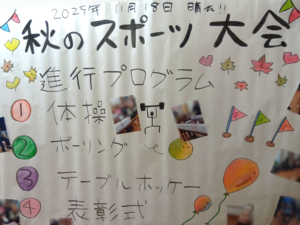 2025年 11月18日 晴れ!!
秋のスポーツ大会
進行プログラム
① 体操
② ボーリング
③ テーブルホッケー
④ 表彰式